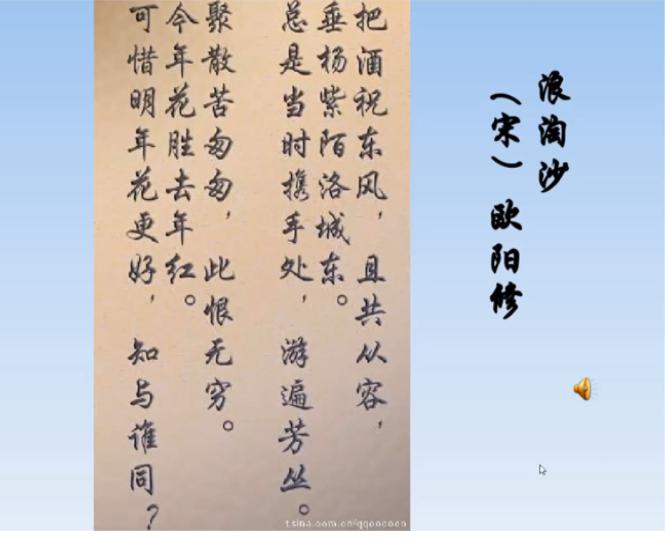 浪淘沙
（宋）欧阳修
把酒祝东风，且共从容，
垂杨紫陌洛城东。
总是当时携手处，游遍芳丛。
聚散苦匆匆，此恨无穷。
今年花胜去年红。
可惜明年花更好，知与谁同？